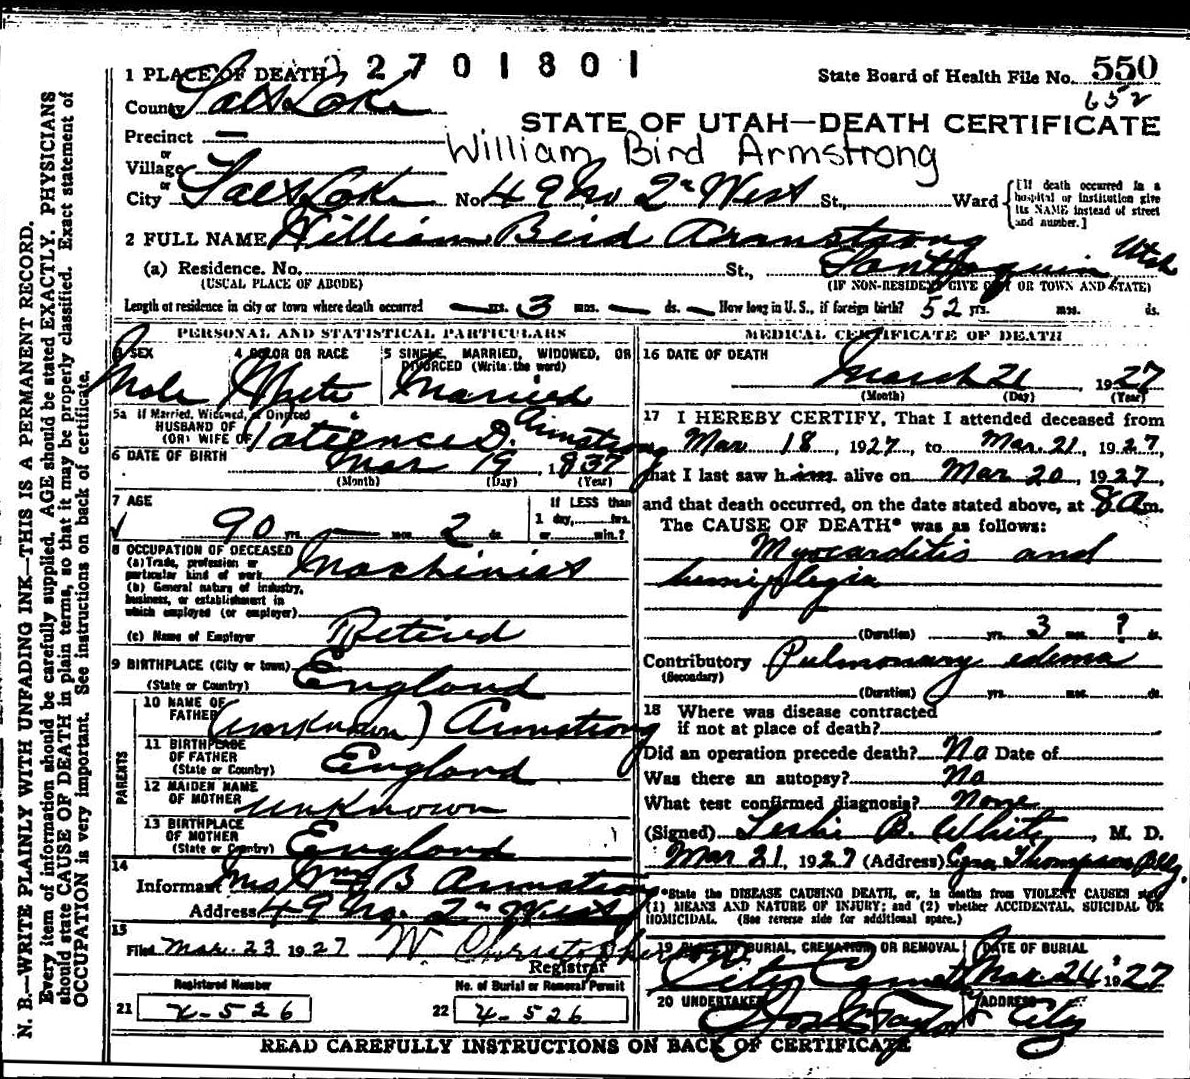 2701801
1 PLACE OF DEATH
State Board of Health File No. 550
652
County Salt Lake
STATE OF UTAH—DEATH CERTIFICATE
Precinct —
William Bird Armstrong
or
Village
or
City Salt Lake No. 49 No 2" West St., Ward
[If death occurred in a hospital or institution give its NAME instead of street and number.]
2 FULL NAME William Bird Armstrong
(a) Residence. No. St., Santaquin Utah
(USUAL PLACE OF ABODE) (IF NON-RESIDENT GIVE CITY OR TOWN AND STATE)
Length of residence in city or town where death occurred — yrs. 3 mos. — ds. — How long in U.S., if foreign birth? 52 yrs. mos. ds.
PERSONAL AND STATISTICAL PARTICULARS
3 SEX Male
4 COLOR OR RACE White
5 SINGLE, MARRIED, WIDOWED, OR DIVORCED (Write the word) Married
5a If Married, Widowed, or Divorced
HUSBAND OF
(OR) WIFE OF Patience D. Armstrong
6 DATE OF BIRTH Mar 19 1837
(Month) (Day) (Year)
7 AGE 90 yrs. — mos. 2 ds.
If LESS than
1 day, hrs.
or min.?
8 OCCUPATION OF DECEASED
(a) Trade, profession or
particular kind of work Machinist
(b) General nature of industry,
business, or establishment in
which employed (or employer)
(c) Name of Employer Retired
9 BIRTHPLACE (City or town)
(State or Country) England
PARENTS
10 NAME OF
FATHER (unknown) Armstrong
11 BIRTHPLACE
OF FATHER
(State or Country) England
12 MAIDEN NAME
OF MOTHER unknown
13 BIRTHPLACE
OF MOTHER
(State or Country) England
14
Informant Mrs Wm B Armstrong
Address 49 No. 2" West
15
Filed Mar. 23 1927 W. Christopherson
Registrar
Registered Number
21 X-526
No. of Burial or Removal Permit
22 X-526
MEDICAL CERTIFICATE OF DEATH
16 DATE OF DEATH
March 21, 1927
(Month) (Day) (Year)
17 I HEREBY CERTIFY, That I attended deceased from
Mar 18 1927, to Mar. 21, 1927,
that I last saw him alive on Mar 20, 1927,
and that death occurred, on the date stated above, at 8 Am.
The CAUSE OF DEATH* was as follows:
Myocarditis and
hemiplegia
(Duration) yrs. 3 mos. ? ds.
Contributory Pulmonary edema
(Secondary)
(Duration) yrs. mos. ds.
18 Where was disease contracted
if not at place of death?
Did an operation precede death? No Date of
Was there an autopsy? No
What test confirmed diagnosis? None
(Signed) Leslie B. White, M. D.
Mar 21, 1927 (Address) Ezra Thompson Bldg.
*State the DISEASE CAUSING DEATH, or, in deaths from VIOLENT CAUSES state
(1) MEANS AND NATURE OF INJURY; and (2) whether ACCIDENTAL, SUICIDAL OR
HOMICIDAL. (See reverse side for additional space.)
19 PLACE OF BURIAL, CREMATION OR REMOVAL City Cemet
DATE OF BURIAL Mar. 24 1927
20 UNDERTAKER Jos E Taylor
ADDRESS City
READ CAREFULLY INSTRUCTIONS ON BACK OF CERTIFICATE
N. B.—WRITE PLAINLY WITH UNFADING INK—THIS IS A PERMANENT RECORD.
Every item of information should be carefully supplied. AGE should be stated EXACTLY. PHYSICIANS
should state CAUSE OF DEATH in plain terms, so that it may be properly classified. Exact statement of
OCCUPATION is very important. See instructions on back of certificate.